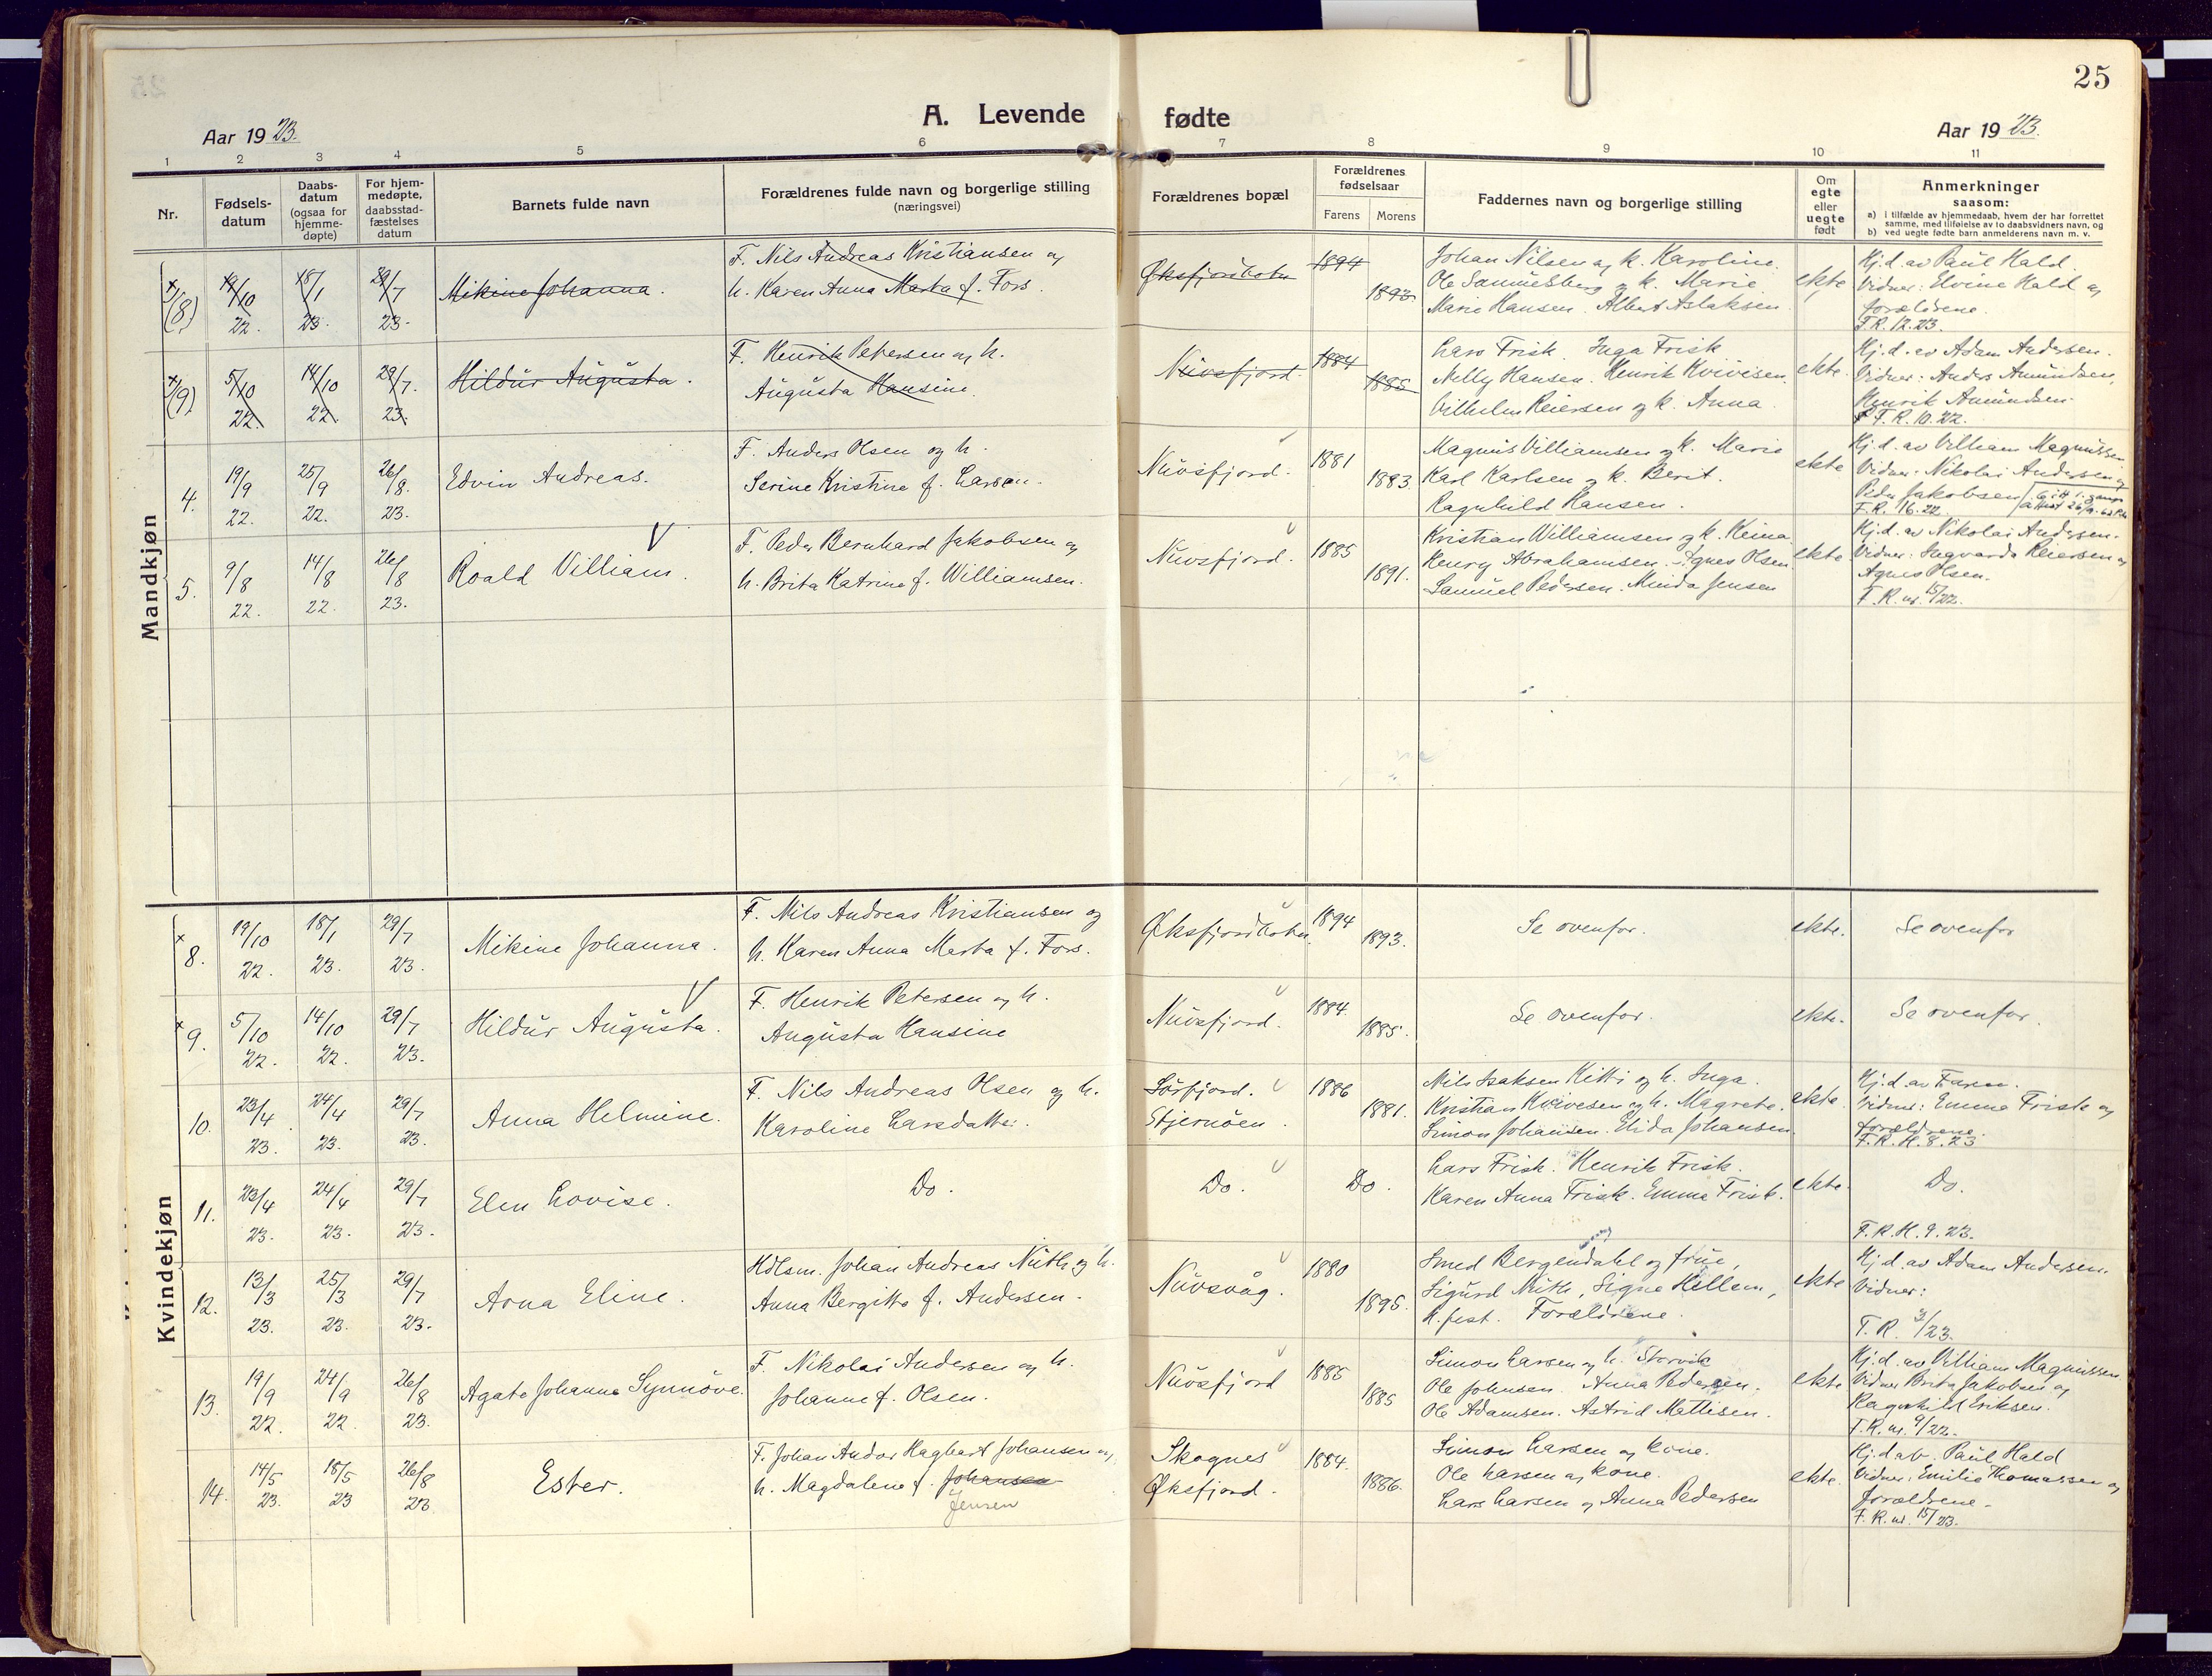 25
A. Levende fødte
Aar 1923.
Aar 1923.
1 2 3 4 5 6 7 8 9 10 11
Nr.
Fødsels-
datum
Daabs-
datum
(ogsaa for
hjemme-
døpte)
For hjem-
medøpte,
daabsstad-
fæstelses
datum
Barnets fulde navn
Forældrenes fulde navn og borgerlige stilling
(næringsvei)
Forældrenes bopæl
Forældrenes
fødselsaar
Farens Morens
Faddernes navn og borgerlige stilling
Om
egte
eller
uegte
født
Anmerkninger
saasom:
a) i tilfælde av hjemmedaab, hvem der har forrettet
samme, med tilføielse av to daabsvidners navn, og
b) ved uegte fødte barn anmelderens navn m. v.
Mandkjøn
x (8) 19/10 22. 18/1 23. 29/7 23.
Mikine Johanna.
F. Nils Andreas Kristiansen og
h. Karen Anna Marta f. Fors.
Øksfjordbotn 1894 1893
Johan Nilsen og k. Karoline.
Ole Samuelsberg og k. Marie
Marie Hansen. Albert Aslaksen
ekte
Hj.d. av Paul Hald.
Vidner: Elvine Hald og
forældrene.
F.R. 12.23.
x (9) 5/10 22. 14/10 22. 29/7. 23.
Hildur Augusta.
F. Henrik Petersen og h.
Augusta Hansine.
Nuvsfjord. 1884 1885
Lars Frisk. Inga Frisk
Nelly Hansen. Henrik Kvivesen.
Vilhelm Reiersen og k. Anna.
ekte.
Hj.d. av Adam Andersen.
Vidner: Anders Amundsen,
Henrik Amundsen.
F.R. 10.22.
4. 19/9 22. 25/9 22. 26/8. 23.
Edvin Andreas.
F. Anders Olsen og h.
Serine Kristine f. Larsen.
Nuvsfjord. 1881 1883.
Magnus Villiamsen og k. Marie
Karl Karlsen og k. Berit.
Ragnhild Hansen.
ekte
Hj.d. av Villiam Magnussen.
Vidner: Nikolai Andersen og
Peder Jakobsen
F.R. 16.22.
5. 9/8 22. 14/8 22. 26/8 23.
Roald Villiam.
F. Peder Bernhard Jakobsen og
h. Brita Katrine f. Williamsen.
Nuvsfjord. 1885 1891.
Kristian Williamsen og k. Keina
Henry Abrahamsen. Agnes Olsen.
Samuel Pedersen. Minda Jensen
ekte
Hj.d. av Nikolai Andersen.
Vidner: Ingvarda Reiersen og
Agnes Olsen.
F.R. nr. 15/22.
Kvindekjøn
x 8. 19/10 22. 18/1 23. 29/7 23.
Mikine Johanna.
F. Nils Andreas Kristiansen og
h. Karen Anna Marta f. Fors.
Øksfjordbotn. 1894 1893.
Se ovenfor.
ekte.
Se ovenfor
x 9. 5/10 22. 14/10 22. 29/7 23.
Hildur Augusta.
F. Henrik Petersen og h.
Augusta Hansine
Nuvsfjord. 1884. 1885.
Se ovenfor.
ekte.
Se ovenfor.
10. 23/4 23. 24/4 23. 29/7 23.
Anna Helmine.
F. Nils Andreas Olsen og h.
Karoline Larsdatter.
Sørfjord.
Stjernøen.
1886 1881.
Nils Isaksen Kitti og h. Inga.
Kristian Kvivesen og h. Magrete.
Simon Johansen. Elida Johansen.
ekte.
Hj.d. av Faren.
Vidner: Emma Frisk og
forældrene.
F.R.H. 8.23
11. 23/4 23. 24/4 23. 29/7 23.
Elen Lovise.
Do.
Do. Do.
Lars Frisk. Henrik Frisk.
Karen Anna Frisk. Emma Frisk.
ekte.
Do.
F.R.H. 9.23.
12. 13/3 23. 25/3 23. 29/7 23.
Arna Eline.
Hdlsm. Johan Andreas Nuth og h.
Anna Bergitte f. Andersen.
Nuvsvåg. 1880 1895.
Smed Bergendahl og frue,
Sigurd Nuth, Signe Hellem,
h.fest. Forældrene.
ekte
Hj.d. av Adam Andersen.
Vidner:
F.R. 3/23.
13. 19/9 22. 24/9 22. 26/8 23.
Agate Johanne Synnöve.
F. Nikolai Andersen og h.
Johanne f. Olsen.
Nuvsfjord 1885 1885
Simon Larsen og h. Storvik
Ole Johnsen. Anna Pedersen.
Ole Adamsen. Astrid Mattisen.
ekte
Hj.d. av Villiam Magnussen.
Vidner Brita Jakobsen og
Ragnhild Eriksen.
F.R. nr. 9/22.
14. 14/5 23. 18/5 23 26/8 23
Ester.
F. Johan Andor Hagbart Johansen og
h. Magdalene f. Johansen
Jensen
Skognes
Øksfjord.
1884. 1886.
Simon Larsen og kone.
Ole Larsen og kone.
Lars Larsen og Anna Pedersen
ekte.
Hj.d. av. Paul Hald
Vidner: Emilie Thomassen og
forældrene.
F.R. nr. 15/23.